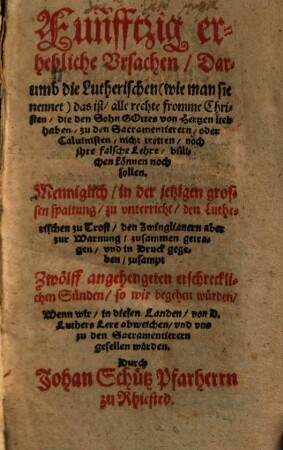 Fünfftzig er-
hebliche Vrsachen / Dar-
umb die Lutherischen (wie man sie
nennet) das ist / alle rechte fromme Chri-
sten / die den Sohn GOttes von Hertzen lieb
haben / zu den Sacramentierern / oder
Caluinisten / nicht tretten / noch
ihre falsche Lehre / billi-
chen können noch
sollen.
Menniglich / in der jetzigen gros-
sen spaltung / zu vnterricht / den Luthe-
rischen zu Trost / den Zwinglianern aber
zur Warnung / zusammen getra-
gen / vnd in Druck gege-
ben / zusampt
Zwölff angehengeten erschreckli-
chen Sünden / so wir begehen würden /
Wenn wir / in diesen Landen / von D.
Luthers Lere abweichen / vnd vns
zu den Sacramentierern
gesellen würden.
Durch
Johan Schütz Pfarherrn
zu Rhiested.